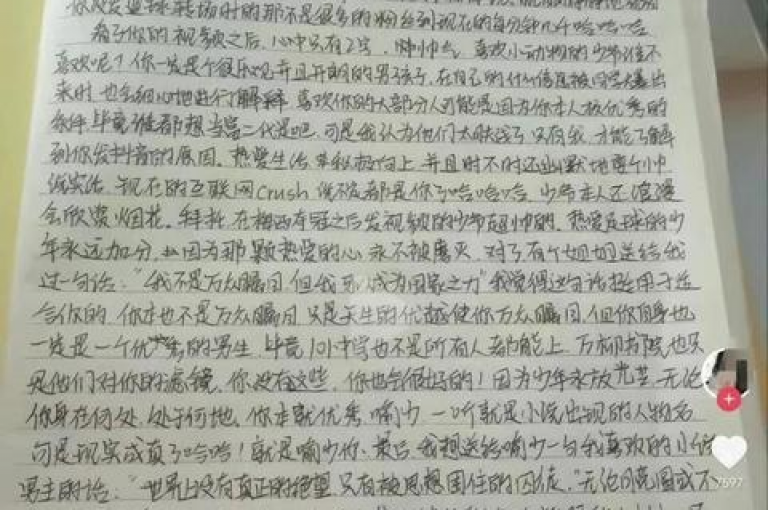 你以发篮球转场时的那不是很多的粉丝到现在的每分钟几千哈哈哈
看了你的视频之后,心中只有2字,帅帅气,喜欢小动物的少年谁不
喜欢呢?你一定是个很乐观并且开朗的男孩子,在自己的什么信息被同学大暴出
来时,也会细心地进行了解释,喜欢你的大部分人可能是因为你本人极优秀的
条件,毕竟谁都想当富二代是吧,可是我认为他们太肤浅了,只有我,才能了解
到你发抖音的原因。热爱生活,积极向上,并且时不时还幽默地耍个小
活宝,现在的互联网crush说不定都是你了哈哈哈,少爷本人还浪漫
会欣赏烟花。拜托,在梅西夺冠之后发视频的少爷超帅的。热爱足球的少
年永远加分,因为那颗热爱的心永不被磨灭。对了有个姐姐送给我
过一句话:“我不是万众瞩目,但我可成为国家之力”我觉得这句话挺用于适
合你的,你本也不是万众瞩目,只是天生的优越使你万众瞩目,但你自身也
一定是一个优秀的男生,毕竟101中学也不是所有人都能上,万柳书院也只
是他们对你的滤镜,你没有这些,你也会很好的!因为少年永放光芒,无论
你身在何处,处于何地,你本就优秀,喻少,一听就是小说出现的人物名
可是现实成真了哈哈!就是喻少你,最后,我想送给喻少一句我喜欢的小说
男主的话:“世界上没有真正的绝望,只有被思想困住的囚徒。”无论
7597